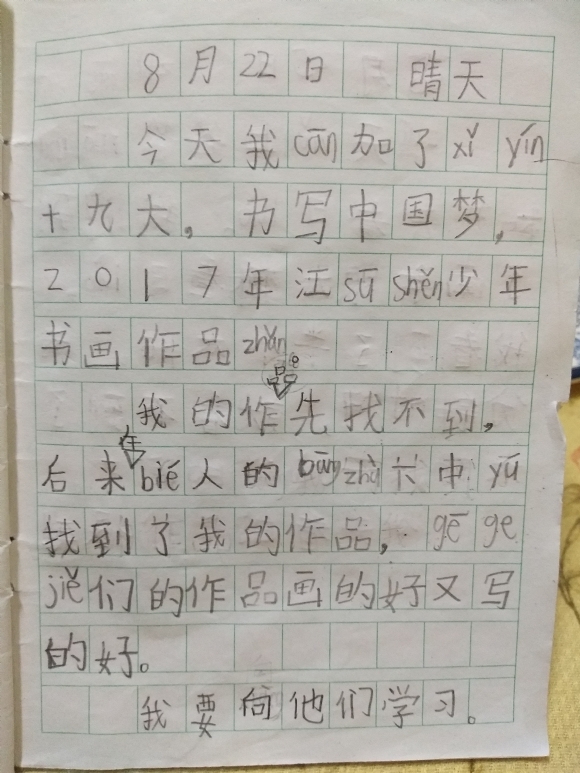 8月22日 晴天
今天我cān加了xǐ yín
十九大，书写中国梦，
2017年江sū shěn少年
书画作品zhǎn
我的作品先找不到，
后来在bié人的bāng zhù六中yū
找到了我的作品，gē ge
jiě们的作品画的好又写
的好。
我要向他们学习。